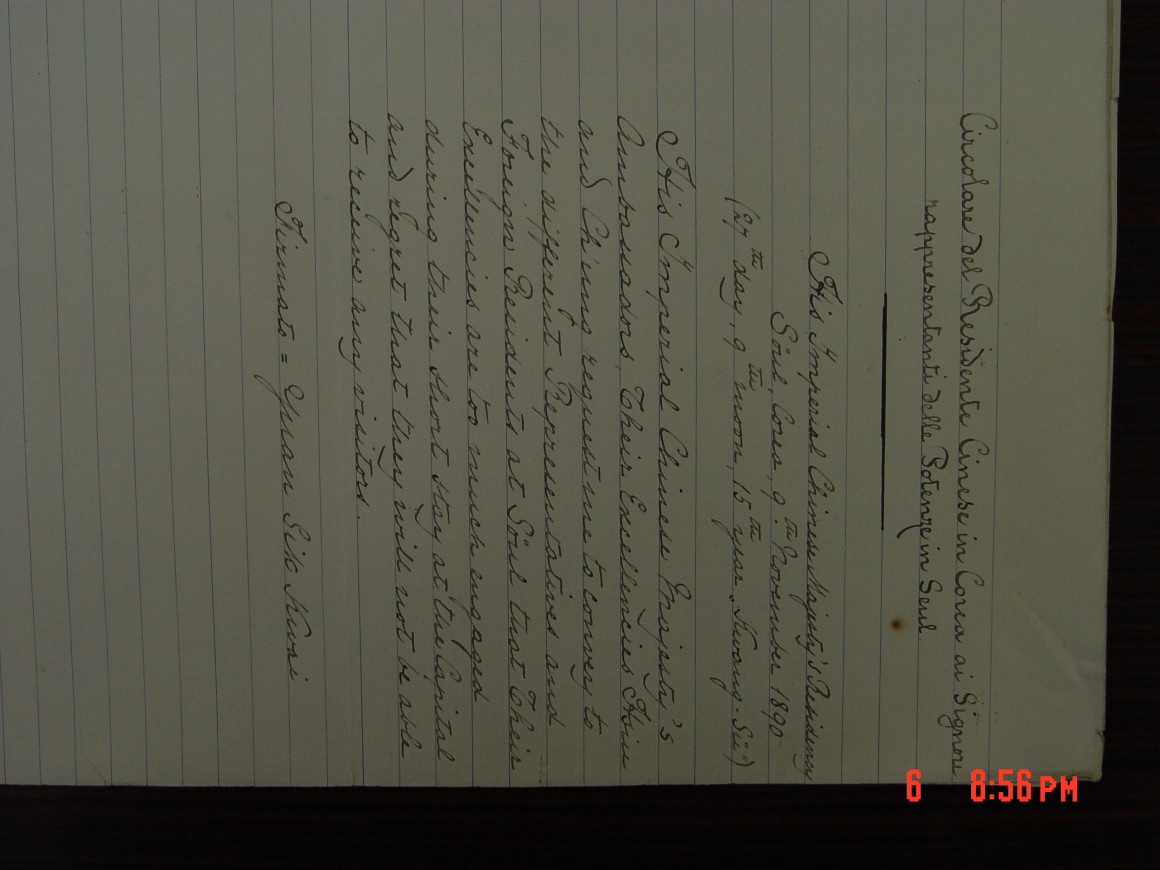 Circolare del Residente Cinese in Corea ai Signori
rappresentanti delle Potenze in Seul
His Imperial Chinese Majesty's Residency
Söul, Corea, 9th November 1890
(27th day, 9th moon, 15th year, "Kuang Sü")
His Imperial Chinese Majesty's
Ambassadors, Their Excellencies Hsu
and Ch'ung request me to convey to
the different Representatives and
Foreign Residents at Söul that Their
Excellencies are too much engaged
during their short stay at the Capital
and regret that they will not be able
to receive any visitors.
Firmato = Yuan Sik Kwai
6 8:56 PM